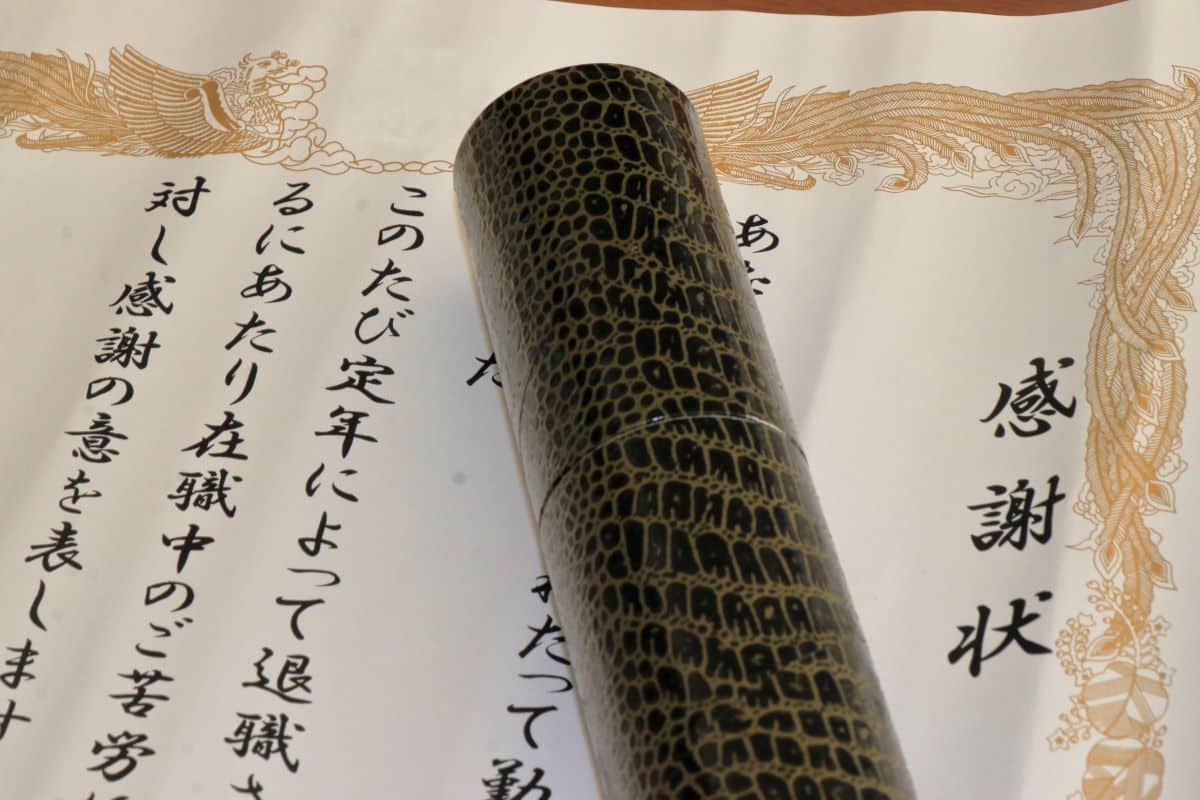 感謝状
あ
た
わたって勤
このたび定年によって退職さ
るにあたり在職中のご苦労に
対し感謝の意を表します